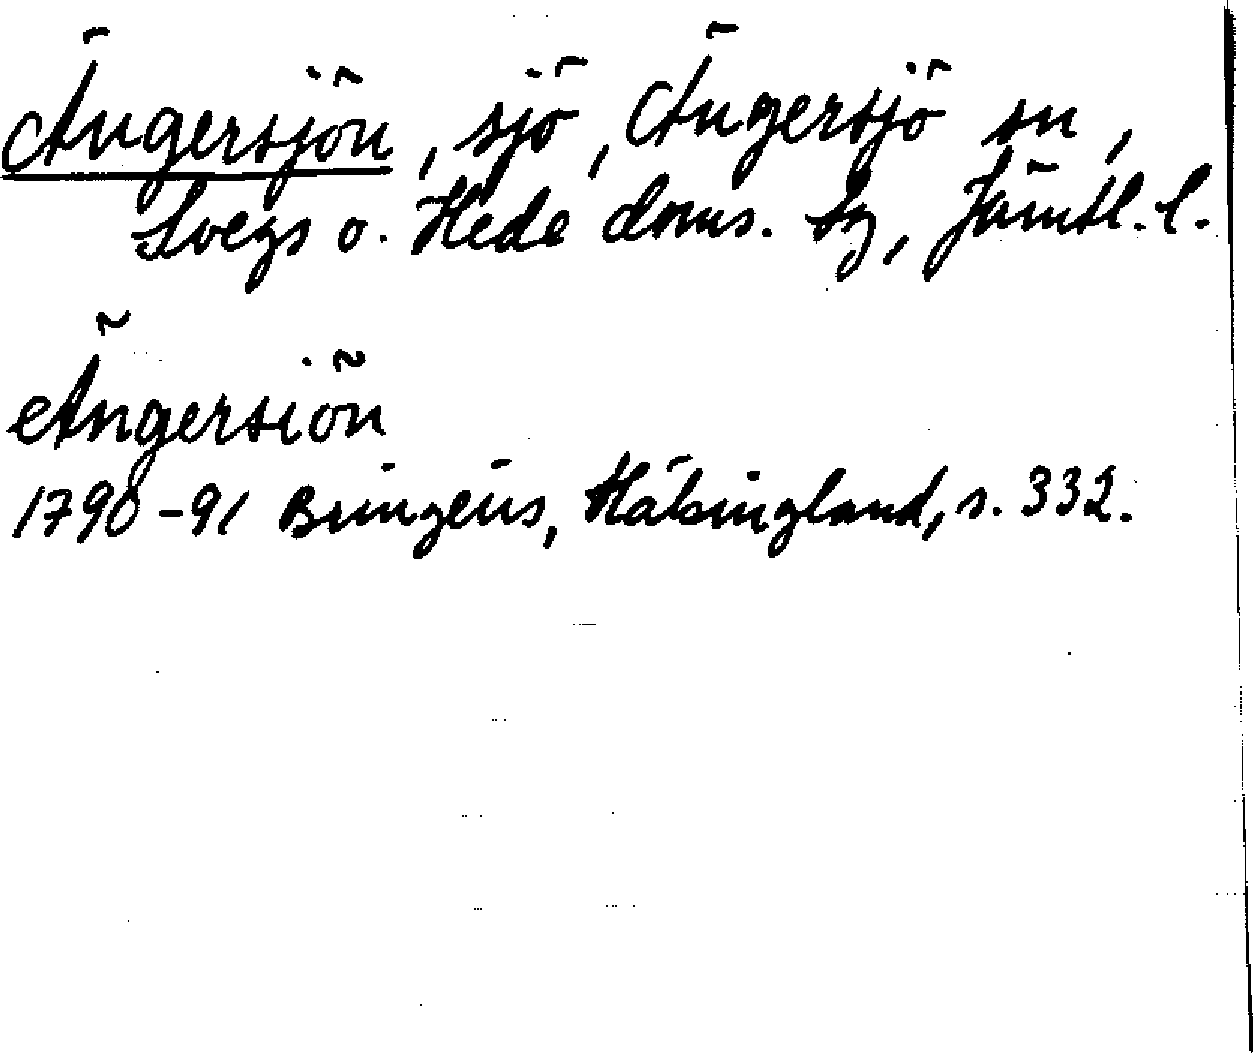 Ängersjön, sjö, Ängersjö sn,
Svegs o. Hede doms. tg, Jämtl. l.
Ängersiön
1790-91 Brinzeüs, Hälsingland, s. 332.